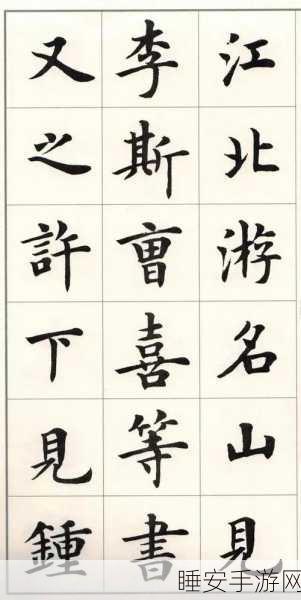 江北游名山見
李斯曹喜等書
又之許下見鍾
睡安手游网